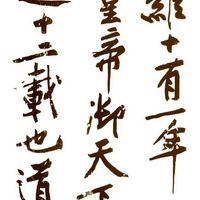 維十有一年
皇帝御天下
十二載也道